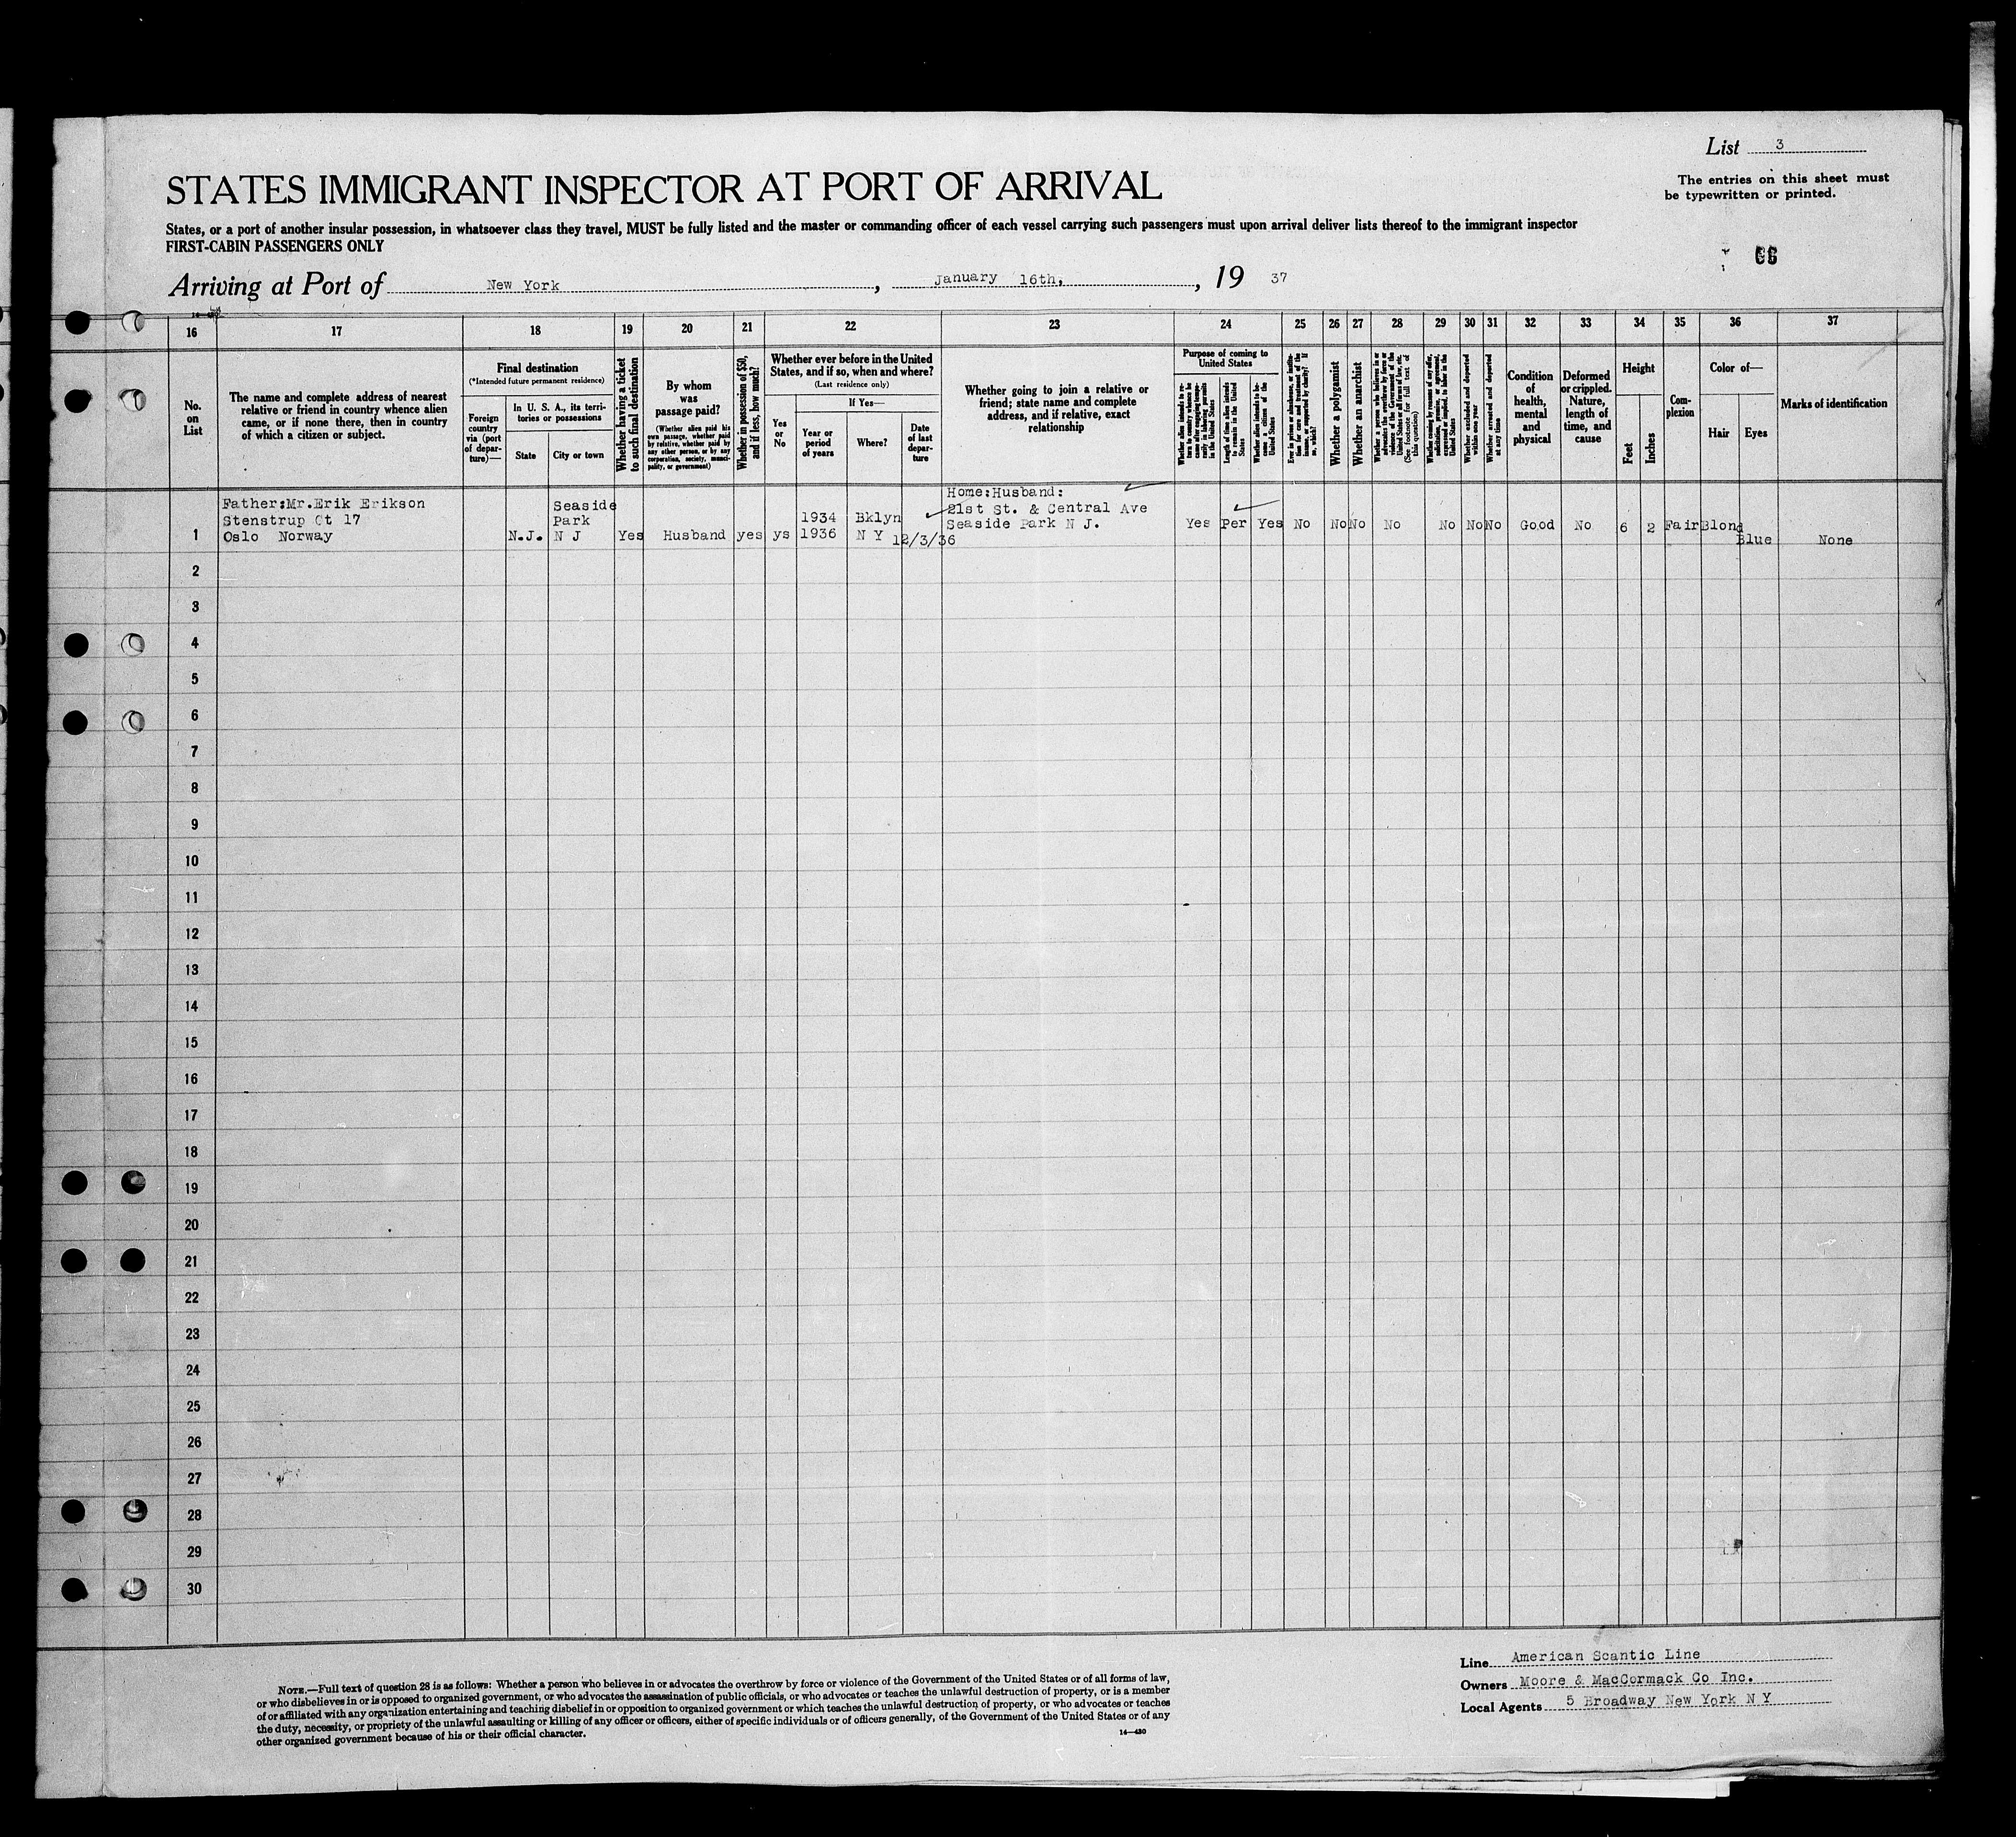 List 3
The entries on this sheet must
be typewritten or printed.
STATES IMMIGRANT INSPECTOR AT PORT OF ARRIVAL
States, or a port of another insular possession, in whatsoever class they travel, MUST be fully listed and the master or commanding officer of each vessel carrying such passengers must upon arrival deliver lists thereof to the immigrant inspector
FIRST-CABIN PASSENGERS ONLY
66
Arriving at Port of New York, January 16th, 19 37
16 17 18 19 20 21 22 23 24 25 26 27 28 29 30 31 32 33 34 35 36 37
No.
on
List
The name and complete address of nearest
relative or friend in country whence alien
came, or if none there, then in country
of which a citizen or subject.
Final destination
(*Intended future permanent residence)
Foreign
country
via (port
of depar-
ture)—
In U. S. A., its terri-
tories or possessions
State
City or town
Whether having a ticket
to such final destination
By whom
was
passage paid?
(Whether alien paid his
own passage, whether paid
by relative, whether paid by
any other person, or by any
corporation, society, munici-
pality, or government)
Whether in possession of $50,
and if less, how much?
Whether ever before in the United
States, and if so, when and where?
(Last residence only)
Yes
or
No
If Yes—
Year or
period
of years
Where?
Date
of last
depar-
ture
Whether going to join a relative or
friend; state name and complete
address, and if relative, exact
relationship
Purpose of coming to
United States
Whether alien intends to re-
turn to country whence he
came after engaging tempo-
rarily in laboring pursuits
in the United States
Length of time alien intends
to remain in the United
States
Whether alien intends to be-
come a citizen of the
United States
Ever in prison or almshouse, or institu-
tion for care and treatment of the
insane, or supported by charity? If
so, which?
Whether a polygamist
Whether an anarchist
Whether a person who believes in or
advocates the overthrow by force or
violence of the Government of the
United States or all forms of law, etc.
(See footnote for full text of
this question)
Whether coming by reason of any offer,
solicitation, promise, or agreement,
expressed or implied, to labor in the
United States
Whether excluded and deported
within one year
Whether arrested and deported
at any time
Condition
of
health,
mental
and
physical
Deformed
or crippled.
Nature,
length of
time, and
cause
Height
Feet
Inches
Com-
plexion
Color of—
Hair
Eyes
Marks of identification
Father:Mr.Erik Erikson
Stenstrup Gt 17
Oslo Norway
1
N.J.
Seaside
Park
N J
Yes
Husband
yes
ys
1934
1936
Bklyn
N Y
12/3/36
Home:Husband:
21st St. & Central Ave
Seaside Park N J.
Yes Per Yes No No No No No No No Good No 6 2 Fair Blond
Blue
None
2
3
4
5
6
7
8
9
10
11
12
13
14
15
16
17
18
19
20
21
22
23
24
25
26
27
28
29
30
Line American Scantic Line
Owners Moore & MacCormack Co Inc.
Local Agents 5 Broadway New York N Y
NOTE.—Full text of question 28 is as follows: Whether a person who believes in or advocates the overthrow by force or violence of the Government of the United States or of all forms of law,
or who disbelieves in or is opposed to organized government, or who advocates the assassination of public officials, or who advocates or teaches the unlawful destruction of property, or is a member
of or affiliated with any organization entertaining and teaching disbelief in or opposition to organized government or which teaches the unlawful destruction of property, or who advocates or teaches
the duty, necessity, or propriety of the unlawful assaulting or killing of any officer or officers, either of specific individuals or of officers generally, of the Government of the United States or of any
other organized government because of his or their official character.
14—430